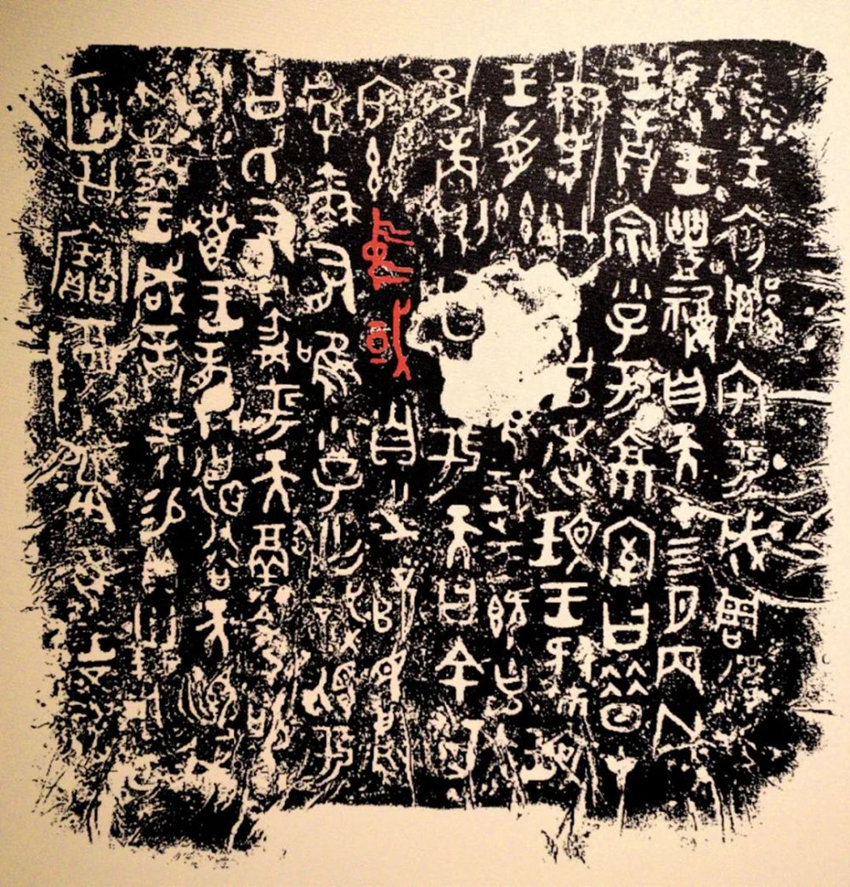 隹王初䙴宅于成周復爯
王豐福自天才四月丙戌
王誥宗小子于京室曰昔才
爾考公氏克逨玟王肆玟
王受茲大令隹珷王既克大
邑商則廷告于天曰余其
宅茲中或自之乂民烏
虖爾有唯小子亡識視于
公氏有爵于天徹令敬
享哉叀王龏德谷天順我
不敏王咸誥何易貝卅朋用乍
𢈔公寶尊彝隹王五祀